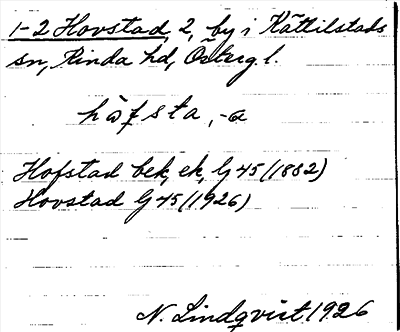 1-2 Hovstad, 2, by i Kättilstads
sn, Kinda hd, Österg.l.
hɷ̀fsta, -a
Hofstad bek, ek, G 45 (1882)
Hovstad G 45 (1926)
N. Lindqvist. 1926